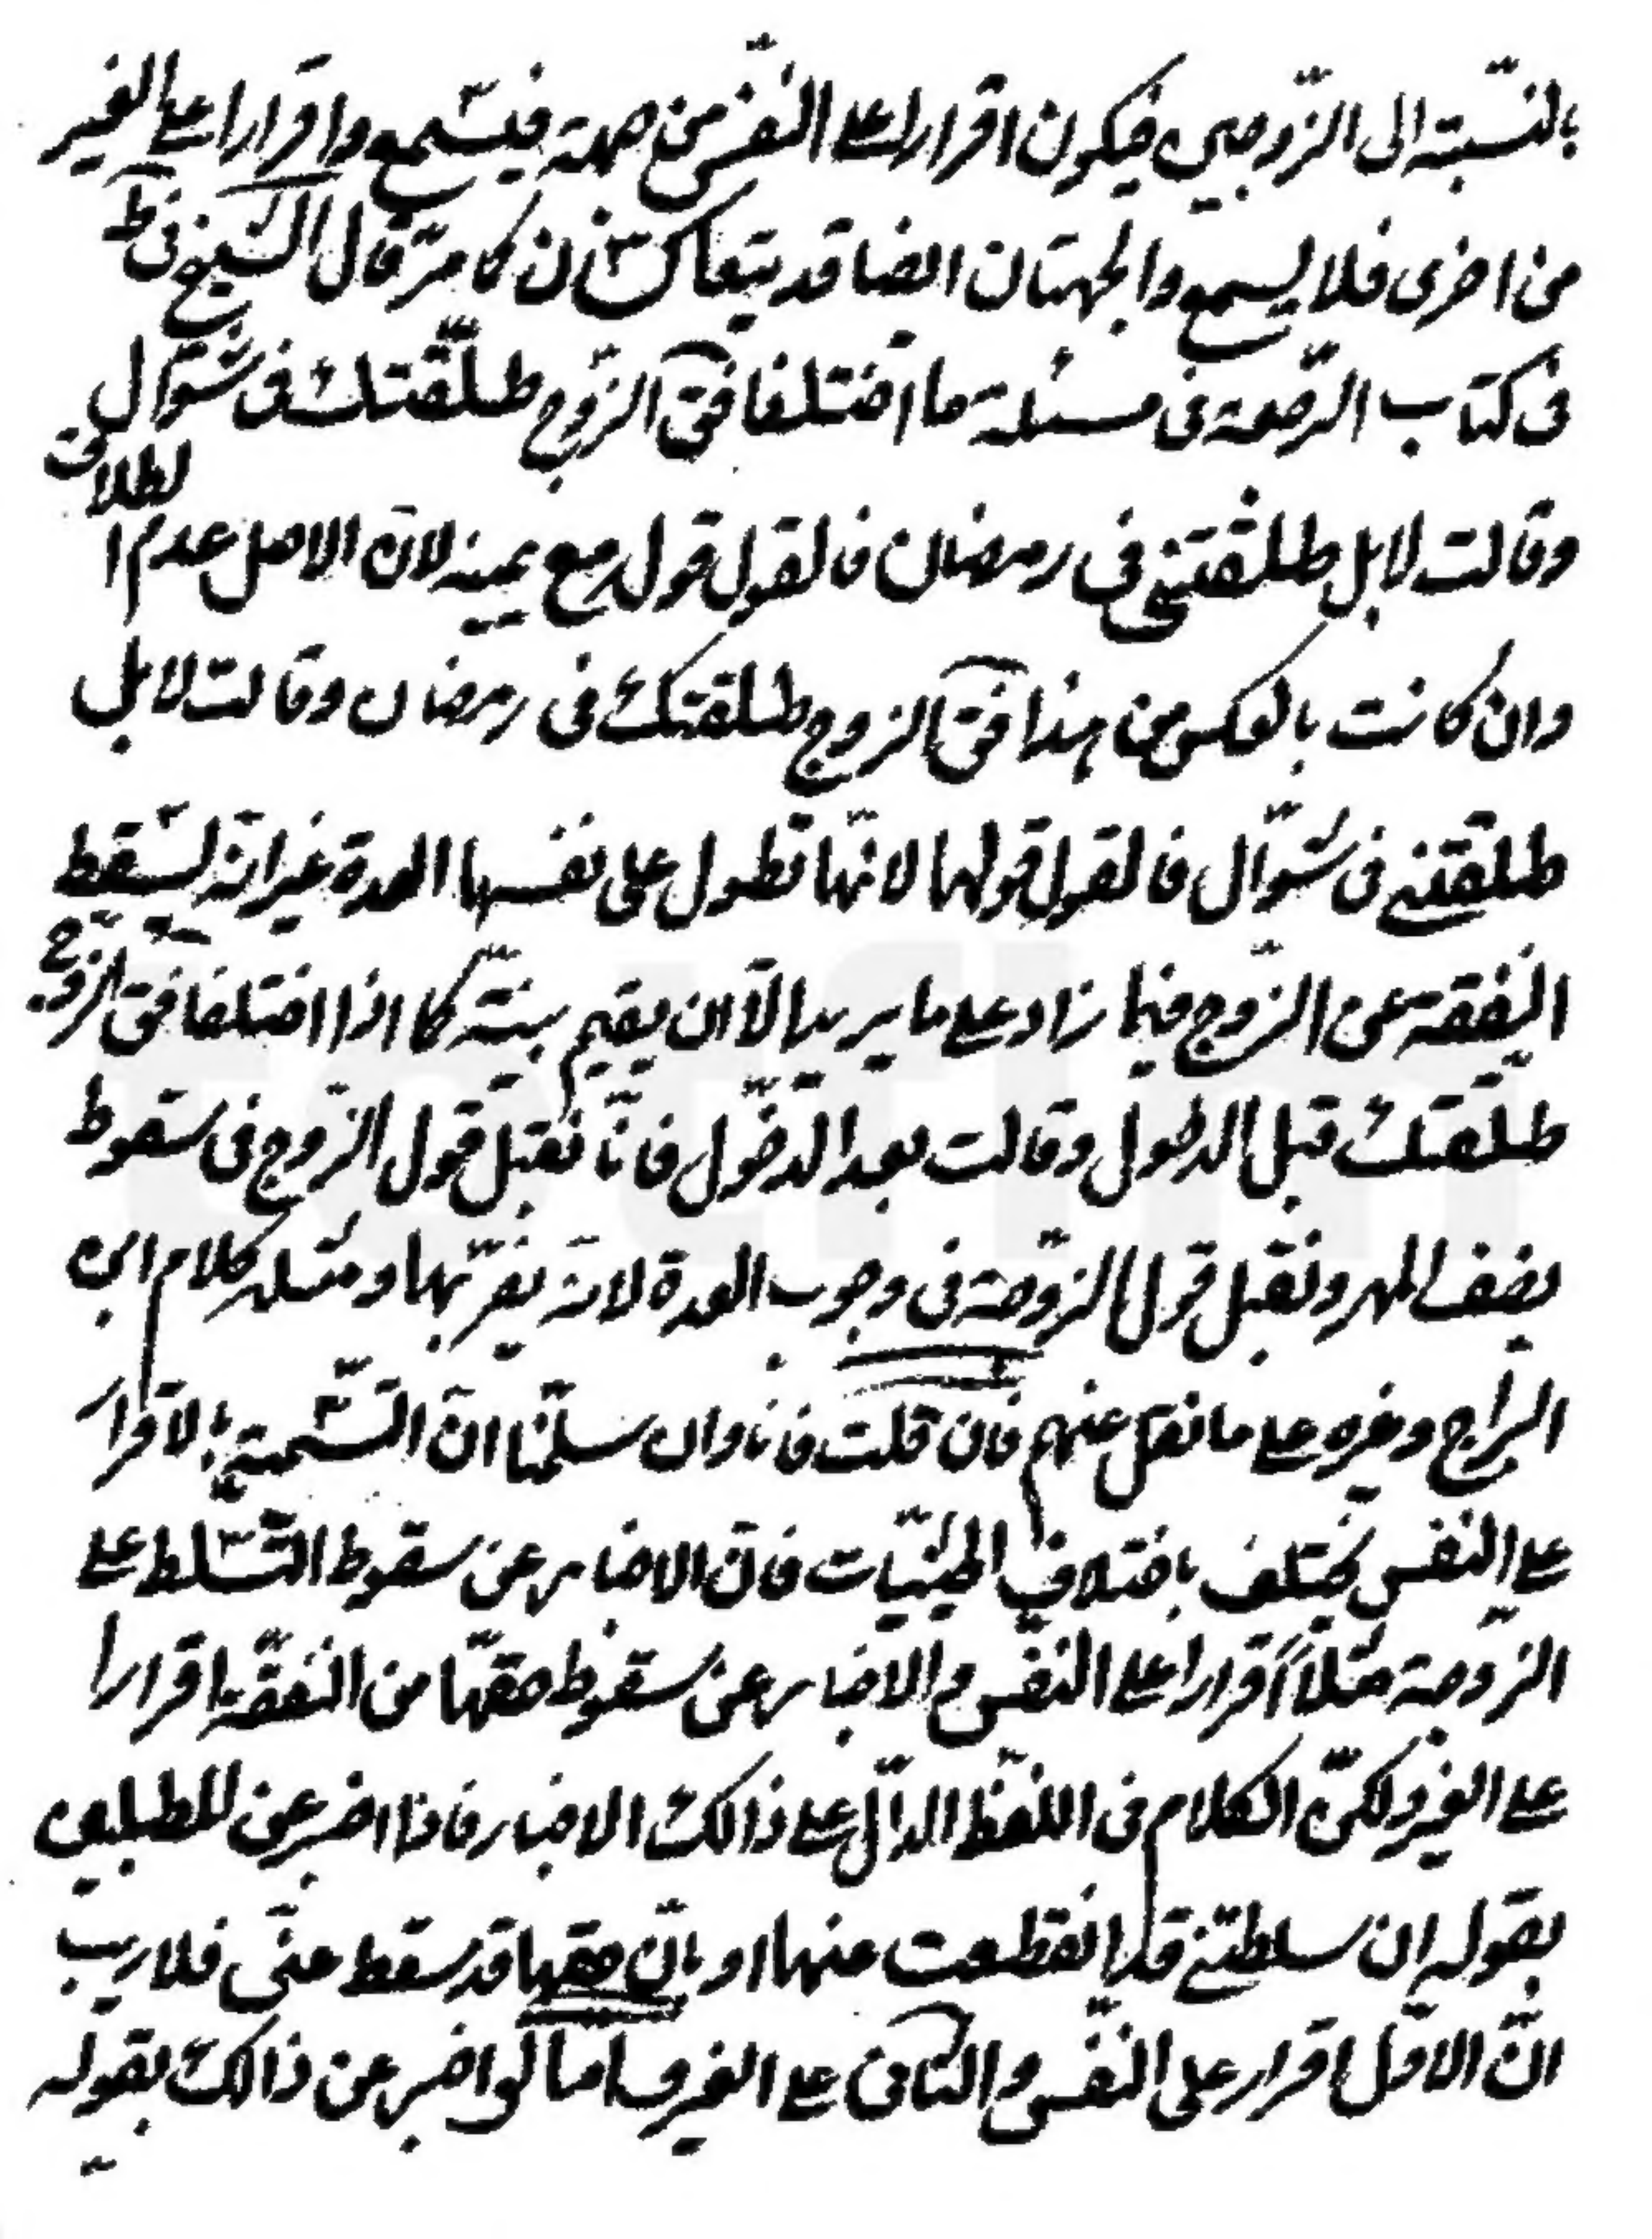 بالنسبة الى الزوجين فيكون اقرارا على النفس من جهة فيسمع واقرارا على الغير
من اخرى فلا يسمع والجهتان ايضا قد يتعاكسان كما مرّ قال الشيخ في ط
في كتاب الرجعة في مسئلة ما اختلفا فق الزوج طلّقتك في شوّال
وقالت لا بل طلّقتني في رمضان فالقول قوله مع يمينه لانّ الاصل عدم الطلاق
وان كانت بالعكس من هذا فق الزوج طلقتك في رمضان وقالت لا بل
طلقتني في شوّال فالقول قولها لانّها تطول على نفسها العدة غير انّه تسقط
النفقة عن الزّوج فيما زاد على ما يريد الّا ان يقيم بيّنة كما اذا اختلفا فق الزوج
طلّقتك قبل الدخول وقالت بعد الدّخول فانّا نقبل قول الزّوج في سقوط
نصف المهر ونقبل قول الزّوجة في وجوب العدة لانّه يضرّ بها ومثله كلام ابن
البراج وغيره على ما نقل عنهم فان قلت فانا وان سلّمنا انّ التّسمية بالاقرار
على النفس يختلف باختلاف الحيثيّات فانّ الاخبار عن سقوط التّسلط على
الزّوجة مثلاً اقرارا على النفس والاخبار عن سقوط حقّها من النفقة اقرارا
على الغير ولكنّ الكلام في اللفظ الدالّ على ذالك الاخبار فاذا اخبر عن المطلبين
بقوله ان سلطتي قد انقطعت عنها او بانّ حقها قد سقط عنّي فلا ريب
انّ الاوّل اقرار على النفس والثاني على الغير واما لو اخبر عن ذالك بقوله